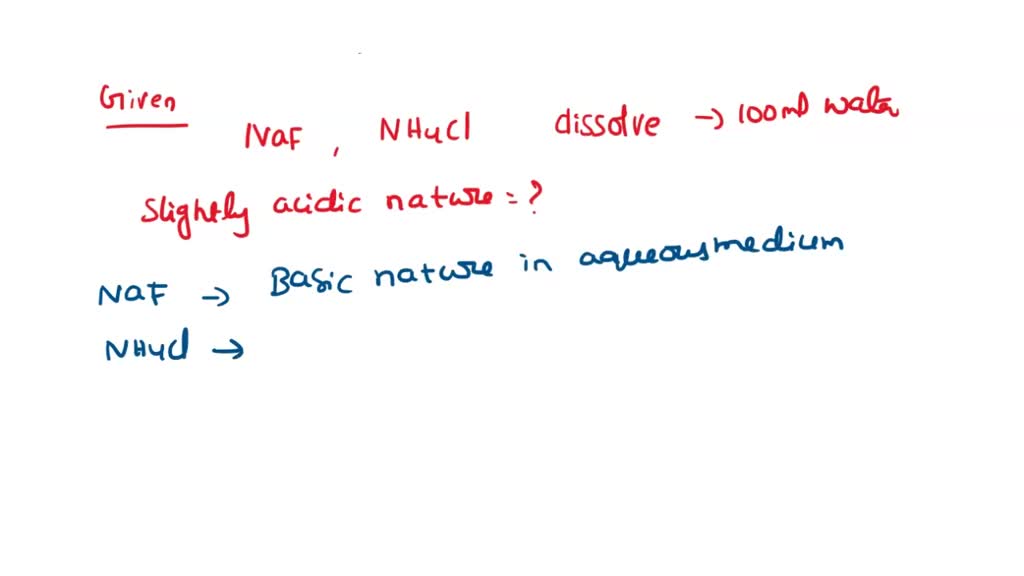 Given
NaF , NH4Cl dissolve → 100ml water
Slightly acidic nature = ?
NaF → Basic nature in aqueous medium
NH4Cl →